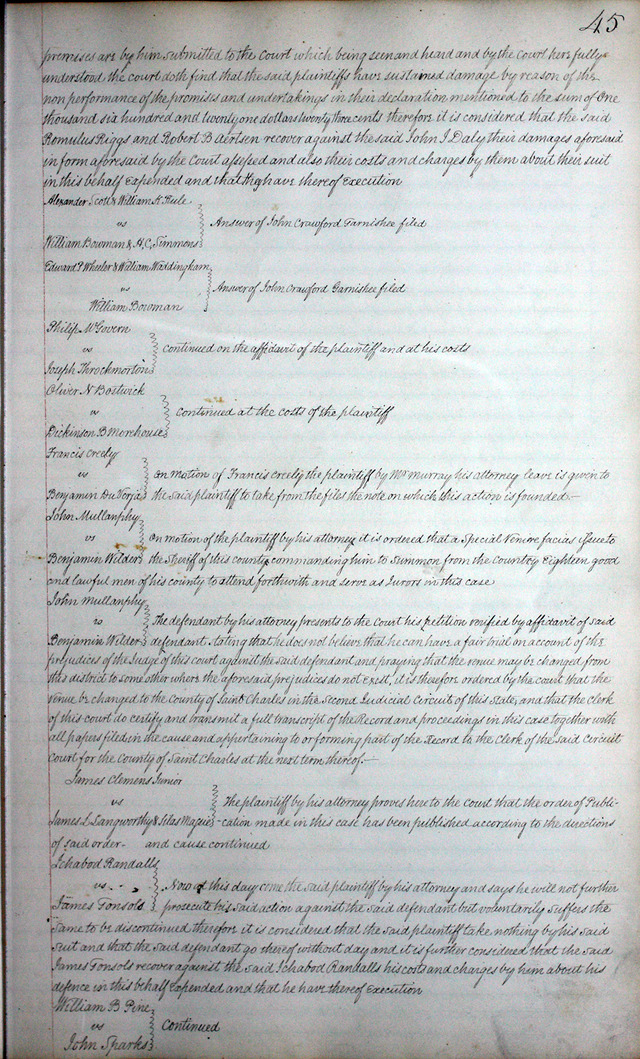 45
premises are by him submitted to the Court which being seen and heard and by the Court here fully
understood the court doth find that the said plaintiffs have sustained damage by reason of the
non performance of the promises and undertakings in their declaration mentioned to the sum of One
thousand six hundred and twenty one dollars twenty three cents therefore it is considered that the said
Romulus Riggs and Robert B Aertsen recover against the said John J Daly their damages aforesaid
in form aforesaid by the Court assessed and also their costs and charges by them about their suit
in this behalf Expended and that they have thereof Execution
Alexander Scott & William K Rule
vs
Answer of John Crawford Garnishee filed
William Bowman & A,C, Timmons
Edward P Wheeler & William Waddingham
vs
Answer of John Crawford Garnishee filed
William Bowman
Philip McGovern
vs
continued on the affidavit of the plaintiff and at his costs
Joseph Throckmorton
Oliver N Bostwick
vs
continued at the costs of the plaintiff
Dickinson B Morehouse
Francis Creely
vs
on motion of Francis Creely the plaintiff by Mr Murray his attorney leave is given to
Benjamin
the said plaintiff to take from the files the note on which this action is founded.—
John Mullanphy
vs
on motion of the plaintiff by his attorney it is ordered that a Special Venire facias issue to
Benjamin Wilder
the Sheriff of this county commanding him to Summon from the Country Eighteen good
and lawful men of his county to attend forthwith and serve as Jurors in this case
John Mullanphy
vs
The defendant by his attorney presents to the Court his petition verified by affidavit of said
Benjamin Wilder
defendant stating that he does not believe that he can have a fair trial on account of the
prejudices of the Judge of this court against the said defendant and praying that the venue may be changed from
this district to some other where the aforesaid prejudices do not exist, it is therefore ordered by the court that the
venue be changed to the County of Saint Charles in the Second Judicial Circuit of this State, and that the Clerk
of this court do certify and transmit a full transcript of the Record and proceedings in this case together with
all papers filed in the cause and appertaining to or forming part of the Record to the Clerk of the said Circuit
Court for the County of Saint Charles at the next term thereof.—
James Clemens Junior
vs
The plaintiff by his attorney proves here to the Court that the order of Publi-
James L Langworthy & Silas
cation made in this case has been published according to the directions
of said order- and cause continued
Ichabod Randalls
vs
Now at this day come the said plaintiff by his attorney and says he will not further
James Tonsols
prosecute his said action against the said defendant but voluntarily suffers the
Same to be discontinued therefore it is considered that the said plaintiff take nothing by his said
suit and that the said defendant go thereof without day and it is further considered that the said
James Tonsols recover against the said Ichabod Randalls his costs and charges by him about his
defence in this behalf Expended and that he have thereof Execution
William B Pine
vs
Continued
John Sparks